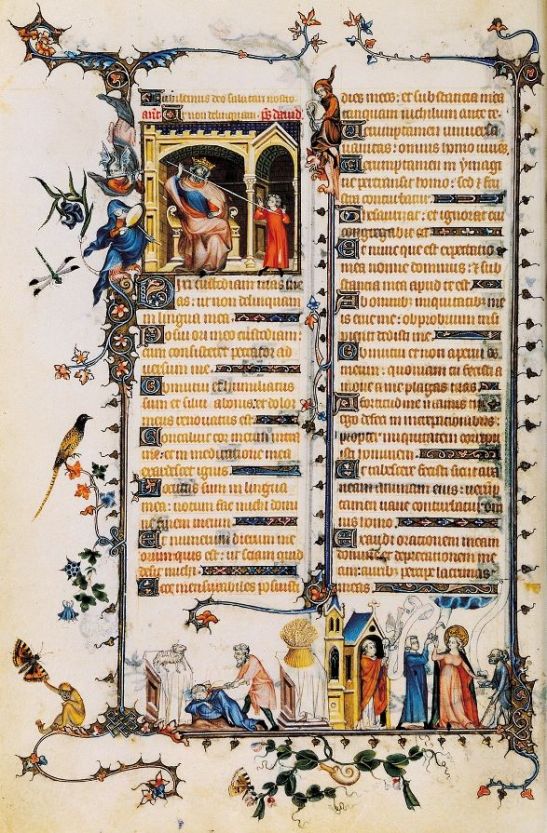 Jubilemus deo salutari nostro
ant. Ut non delinquam. ps. david
Dixi custodiam vias me
as: ut non delinquam
in lingua mea
Posui ori meo custodiam
cum consisteret peccator ad
versum me
Obmutui et humiliatus
sum et silui a bonis: et dolor
meus renovatus est
Concaluit cor meum intra
me: et in meditatione mea
exardescet ignis
Locutus sum in lingua
mea: notum fac michi domi
ne finem meum
Et numerum dierum me
orum quis est: ut sciam quid
desit michi
Ecce mensurabiles posuisti
dies meos: et substantia mea
tanquam nichilum ante te
Veruntamen universa
vanitas: omnis homo vivens
Veruntamen in ymagi
ne pertransit homo: sed et frus
tra conturbatur
Thesaurizat: et ignorat cui
congregabit ea
Et nunc que est expectatio
mea nonne dominus: et sub
stantia mea apud te est
Ab omnibus iniquitatibus me
is erue me: obprobrium insi
pienti dedisti me
Obmutui et non aperui os
meum: quoniam tu fecisti a
move a me plagas tuas
A fortitudine manus tue e
go defeci in increpationibus:
propter iniquitatem corripu
isti hominem
Et tabescere fecisti sicut ara
neam animam eius: verump
tamen vane conturbatur om
nis homo
Exaudi orationem meam
domine et deprecationem me
am: auribus percipe lacrimas
meas